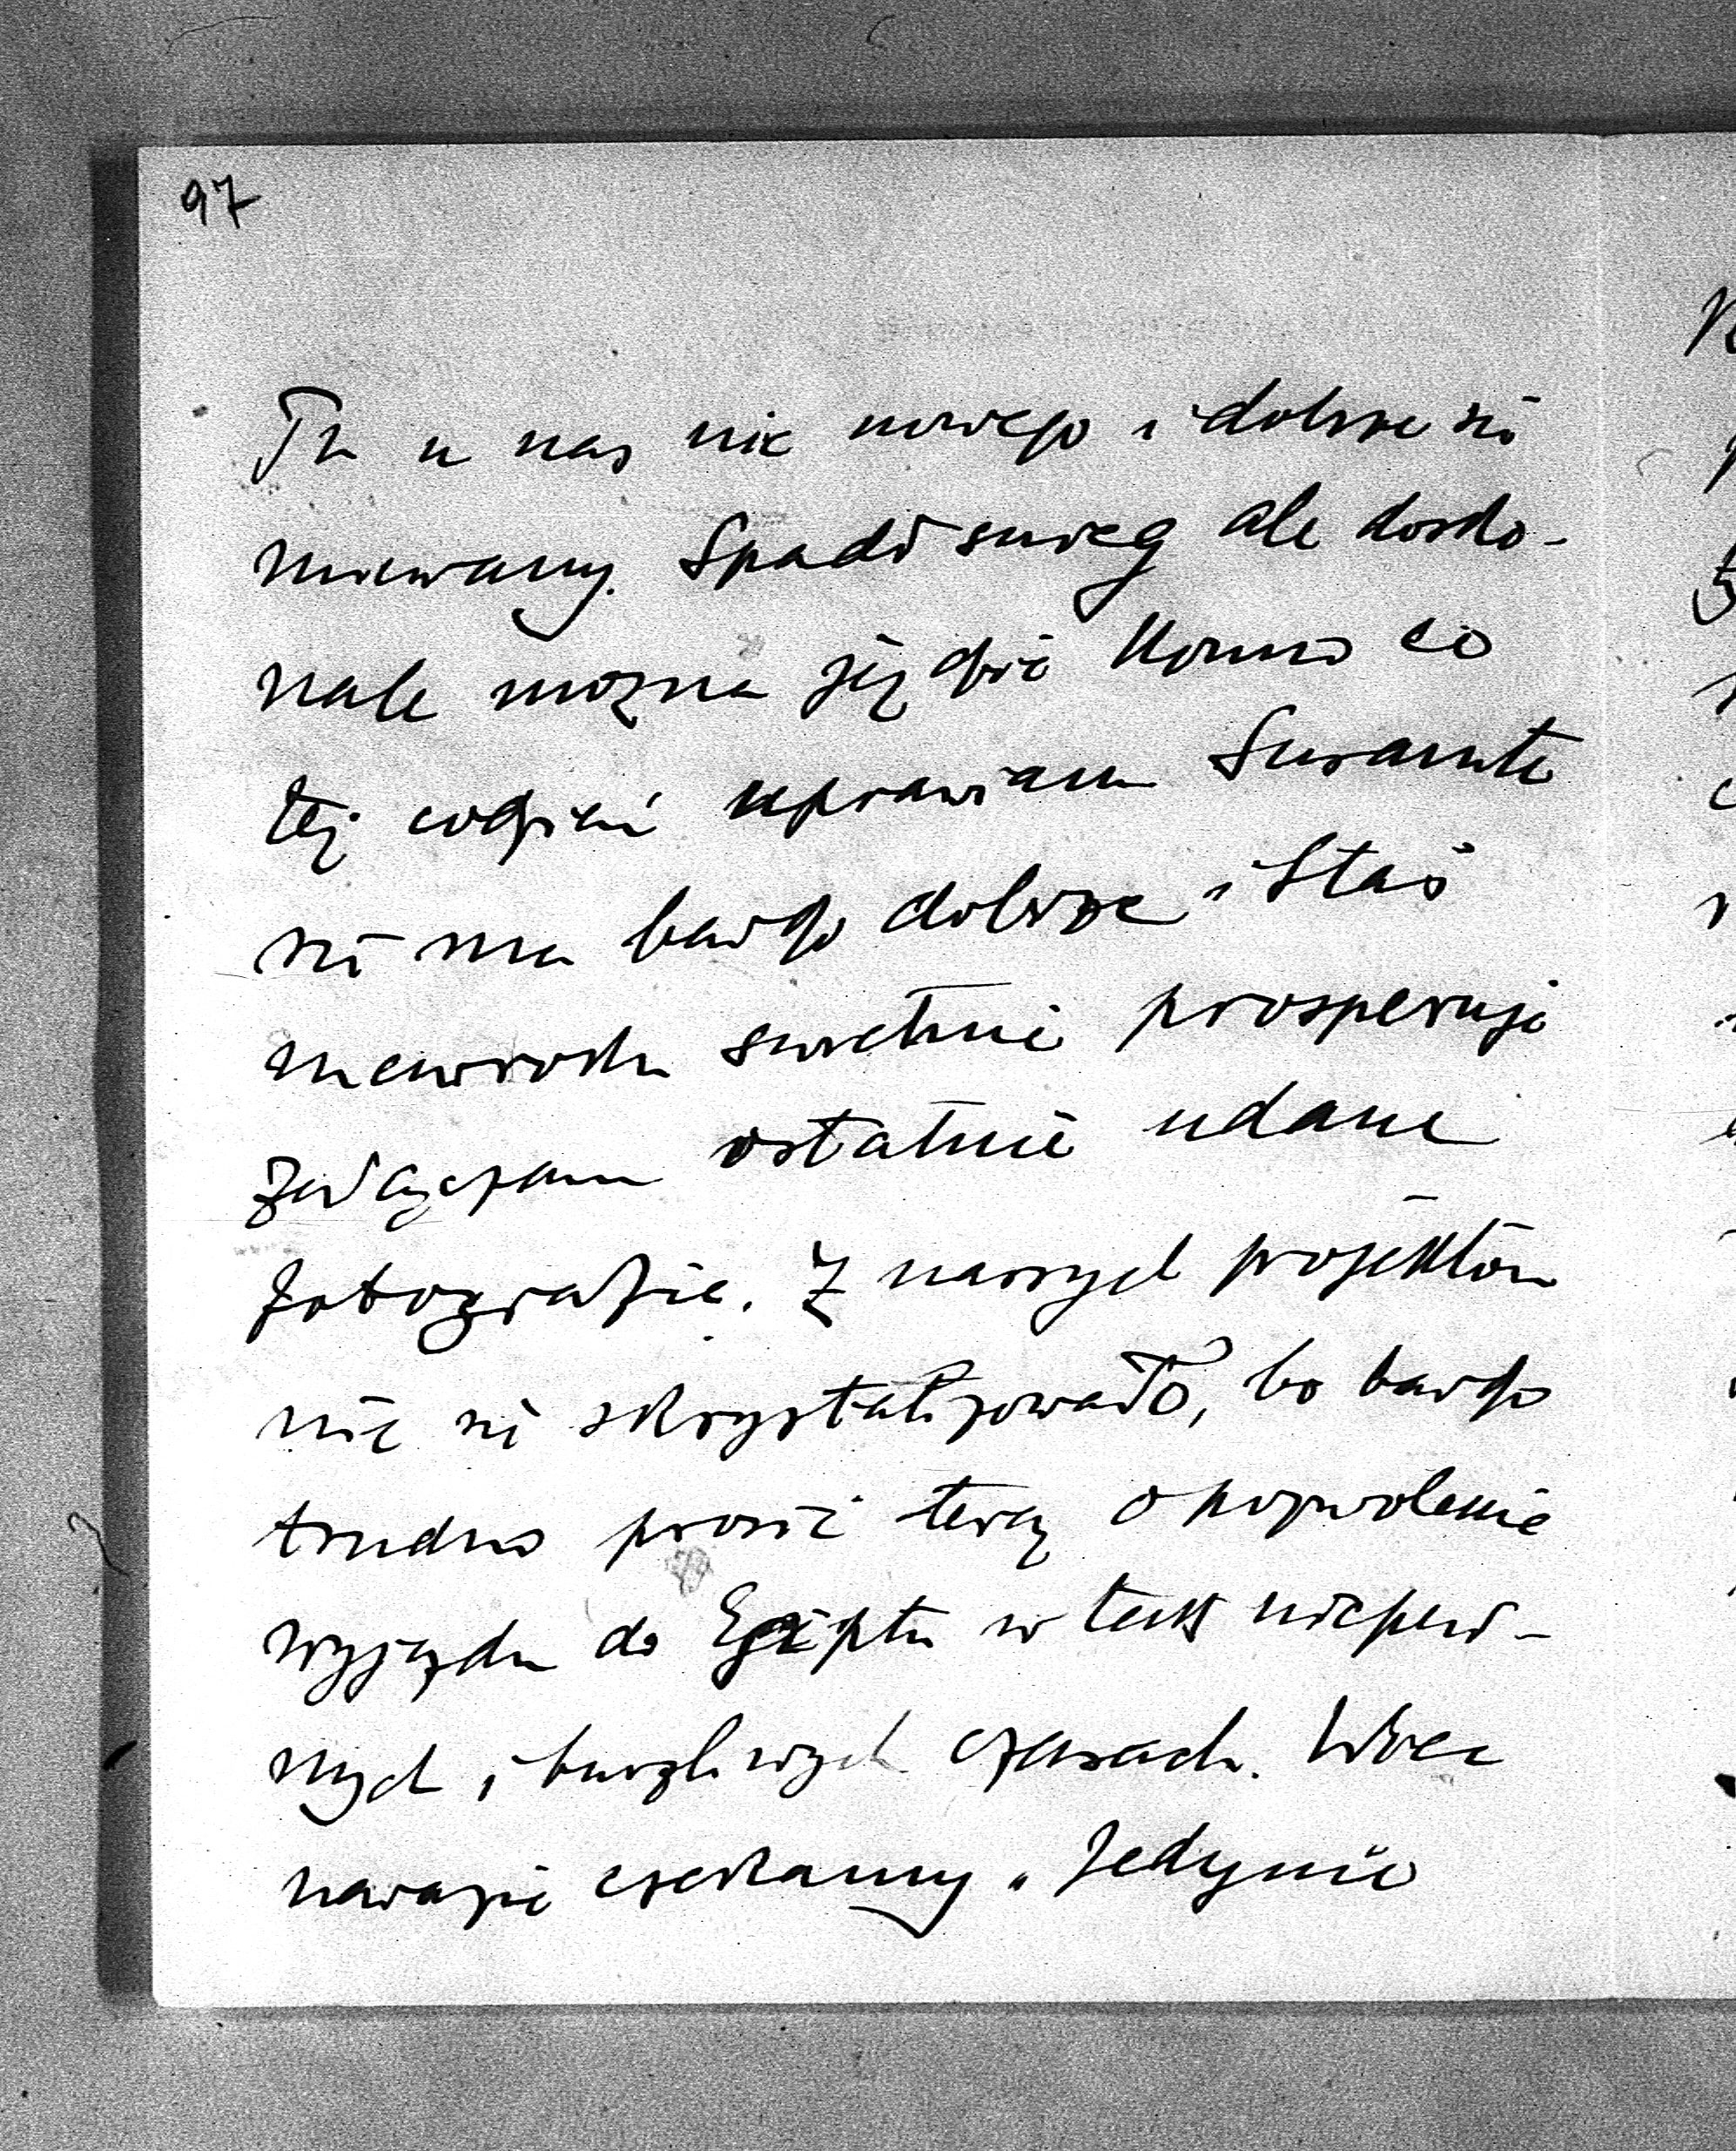 97
Tu u nas nic nowego i dobrze się
miewamy. Spadł śnieg ale dosko-
nale można jeździć konno co
też codzień uprawiam
się ma bardzo dobrze i Staś
świetnie prosperuje
załączam ostatnie udane
fotografie. Z naszych projektów
nic się skrystalizowało, bo bardzo
trudno prosić teraz o pozwolenie
wyjazdu do Egiptu w tak niepew-
nych i burzliwych czasach. Więc
narazie czekamy. Jedynie